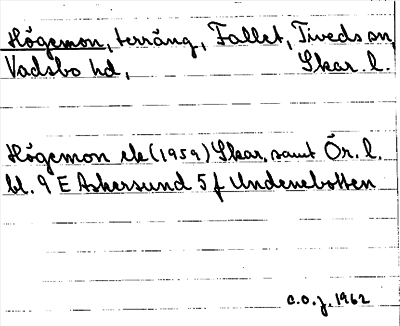 Högemon, terräng, Fallet, Tiveds sn,
Vadsbo hd, Skar. l.
Högemon ek (1959) Skar. samt Ör. l.
bl. 9 E Askersund 5 f Undenebotten
C.O.J. 1962